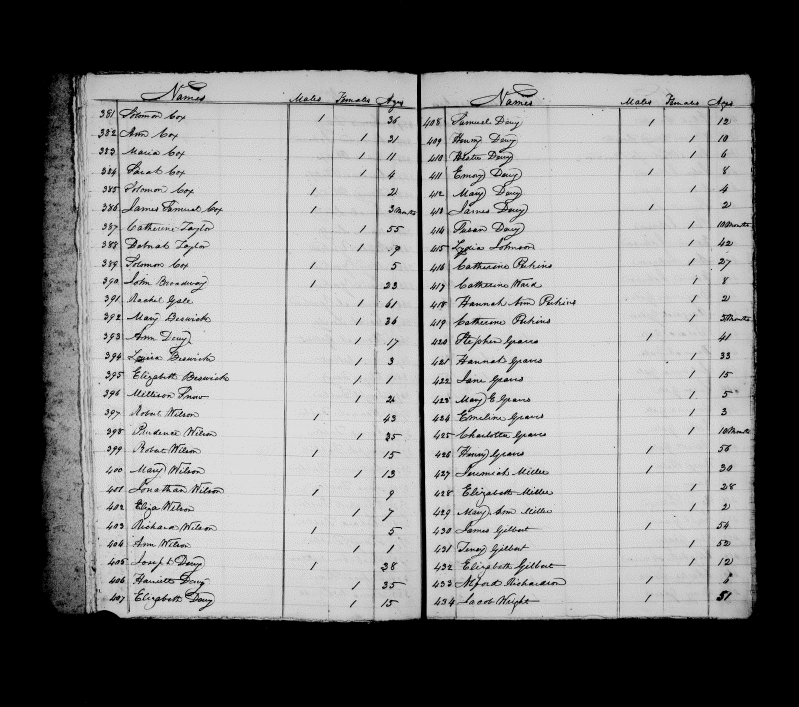 Names Males Females Ages
381 Solomon Cox 1 36
382 Ann Cox 1 31
383 Maria Cox 1 11
384 Sarah Cox 1 4
385 Solomon Cox 1 2
386 James Samuel Cox 1 3 Months
387 Catherine Taylor 1 55
388 Taylor 1 9
389 Solomon Cox 1 5
390 John Broadway 1 23
391 Rachel Gale 1 61
392 Mary Beswick 1 36
393 Ann Deny 1 17
394 Louisa Beswick 1 3
395 Elizabeth Beswick 1 1
396 Millison Snow 1
397 Robert Wilson 1 43
398 Prudence Wilson 1 35
399 Robert Wilson 1 15
400 Mary Wilson 1 13
401 Jonathan Wilson 1 9
402 Eliza Wilson 1 7
403 Richard Wilson 1 5
404 Ann Wilson 1 1
405 Joseph Deny 1 38
406 Harriett Deny 1 35
407 Elizabeth Deny 1 15
Names Males Females Ages
408 Samuel Deny 1 12
409 Deny 1 10
410 Hester Deny 1 6
411 Emory Deny 1 8
412 Mary Deny 1 4
413 James Deny 1 2
414 Susan Deny 1 10 Months
415 Lydia Johnson 1 42
416 Catherine Perkins 1 27
417 Catherine Ward 1 8
418 Hannah Ann Perkins 1 2
419 Catherine Perkins 1 Months
420 Stephen Graves 1 41
421 Hannah Graves 1 33
422 Jane Graves 1 15
423 Mary E Graves 1 5
424 Emeline Graves 1 3
425 Charlotte Graves 1 10 Months
426 Henry Graves 1 56
427 Jeremiah Miller 1 30
428 Elizabeth Miller 1 28
429 Mary Ann Miller 1 2
430 James Gilbert 1 54
431 Gilbert 1 52
432 Elizabeth Gilbert 1 12
433 Alford Richardson 1
434 Jacob Wright 1 51